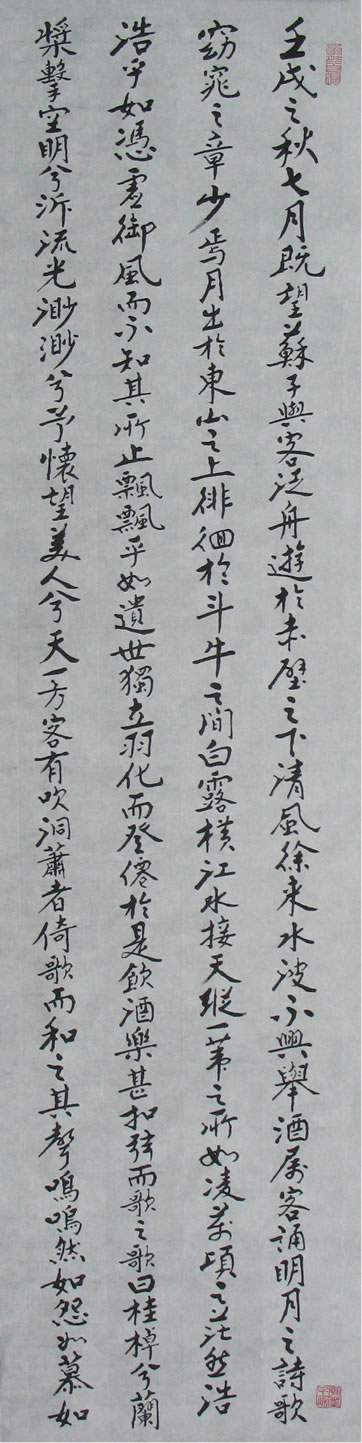 壬戌之秋七月既望蘇子與客泛舟遊於赤壁之下清風徐來水波不興舉酒属客誦明月之詩歌
窈窕之章少焉月出於東山之上徘徊於斗牛之間白露橫江水接天縱一葦之所如凌萬頃之茫然浩
浩乎如馮虛御風而不知其所止飄飄乎如遺世獨立羽化而登僊於是飲酒樂甚扣弦而歌之歌曰桂棹兮蘭
槳擊空明兮泝流光渺渺兮予懷望美人兮天一方客有吹洞蕭者倚歌而和之其聲嗚嗚然如怨如慕如